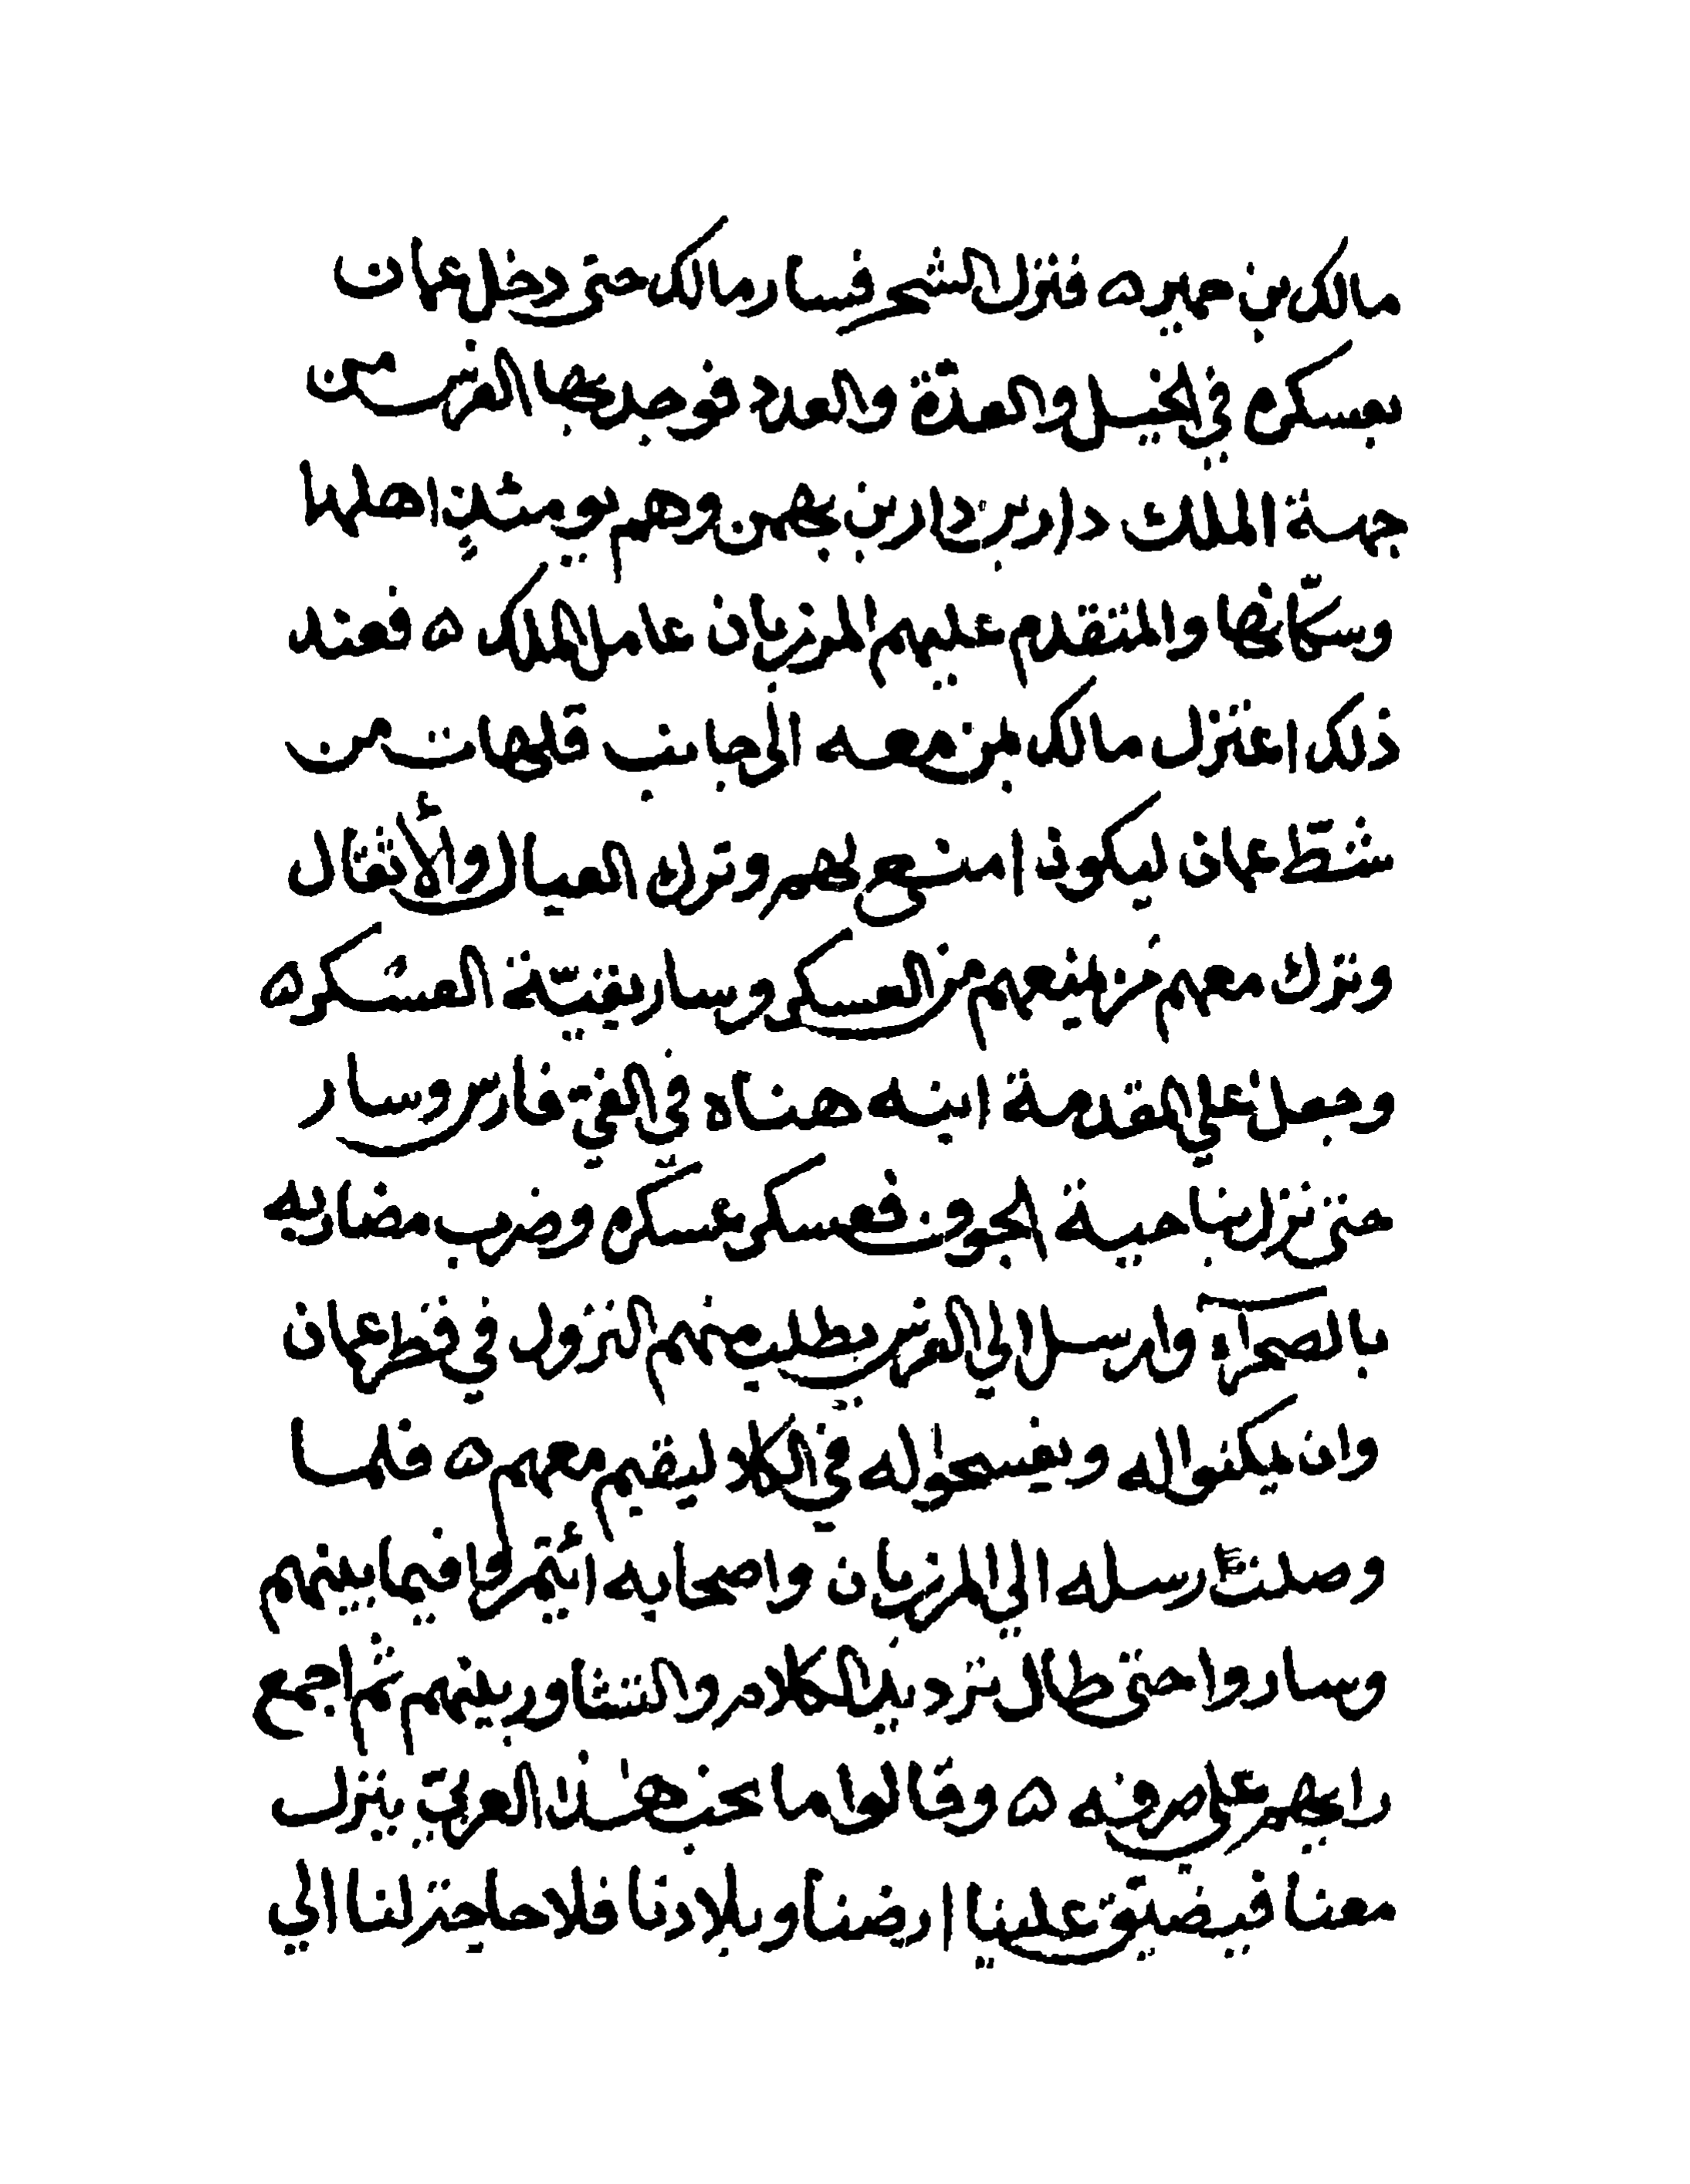 مالك بن حمير ۵ فنزل الشحر فسار مالك حتى دخل عمان
بعسكره في الخيل والعدة والعدد فوجد بها الفرس من
جهة الملك دار بن دار بن بهمن وهم يومئذٍ اهلها
وسكّانها والمتقدم عليهم المرزبان عامل الملك ۵ فعند
ذلك اعتزل مالك بمن معه الى جانب قلهات من
شطّ عمان ليكون امنع لهم وترك العيال والأثقال
وترك معهم من يمنعهم من العسكر وسار ببقيّة العسكر ۵
وجعل على المقدمة ابنه هناه في الفي فارس وسار
حتى نزل بناحية الجوف فعسكر عسكره وضرب مضاربه
بالصحرآء وارسل الي الفرس يطلب منهم النزول في قطر عمان
وان يمكنوا له ويفسحوا له في الكلاد ليقيم معهم ۵ فلما
وصلت رسله الي المرزبان واصحابه ائتمروا فيما بينهم
وساروا حتى طال ترديد الكلام والتشاور بينهم ثم اجمع
رايهم على صرفه ۵ وقالوا ما نحب هذا العربي ينزل
معنا فيضيّق علينا ارضنا وبلادنا فلا حاجة لنا الي